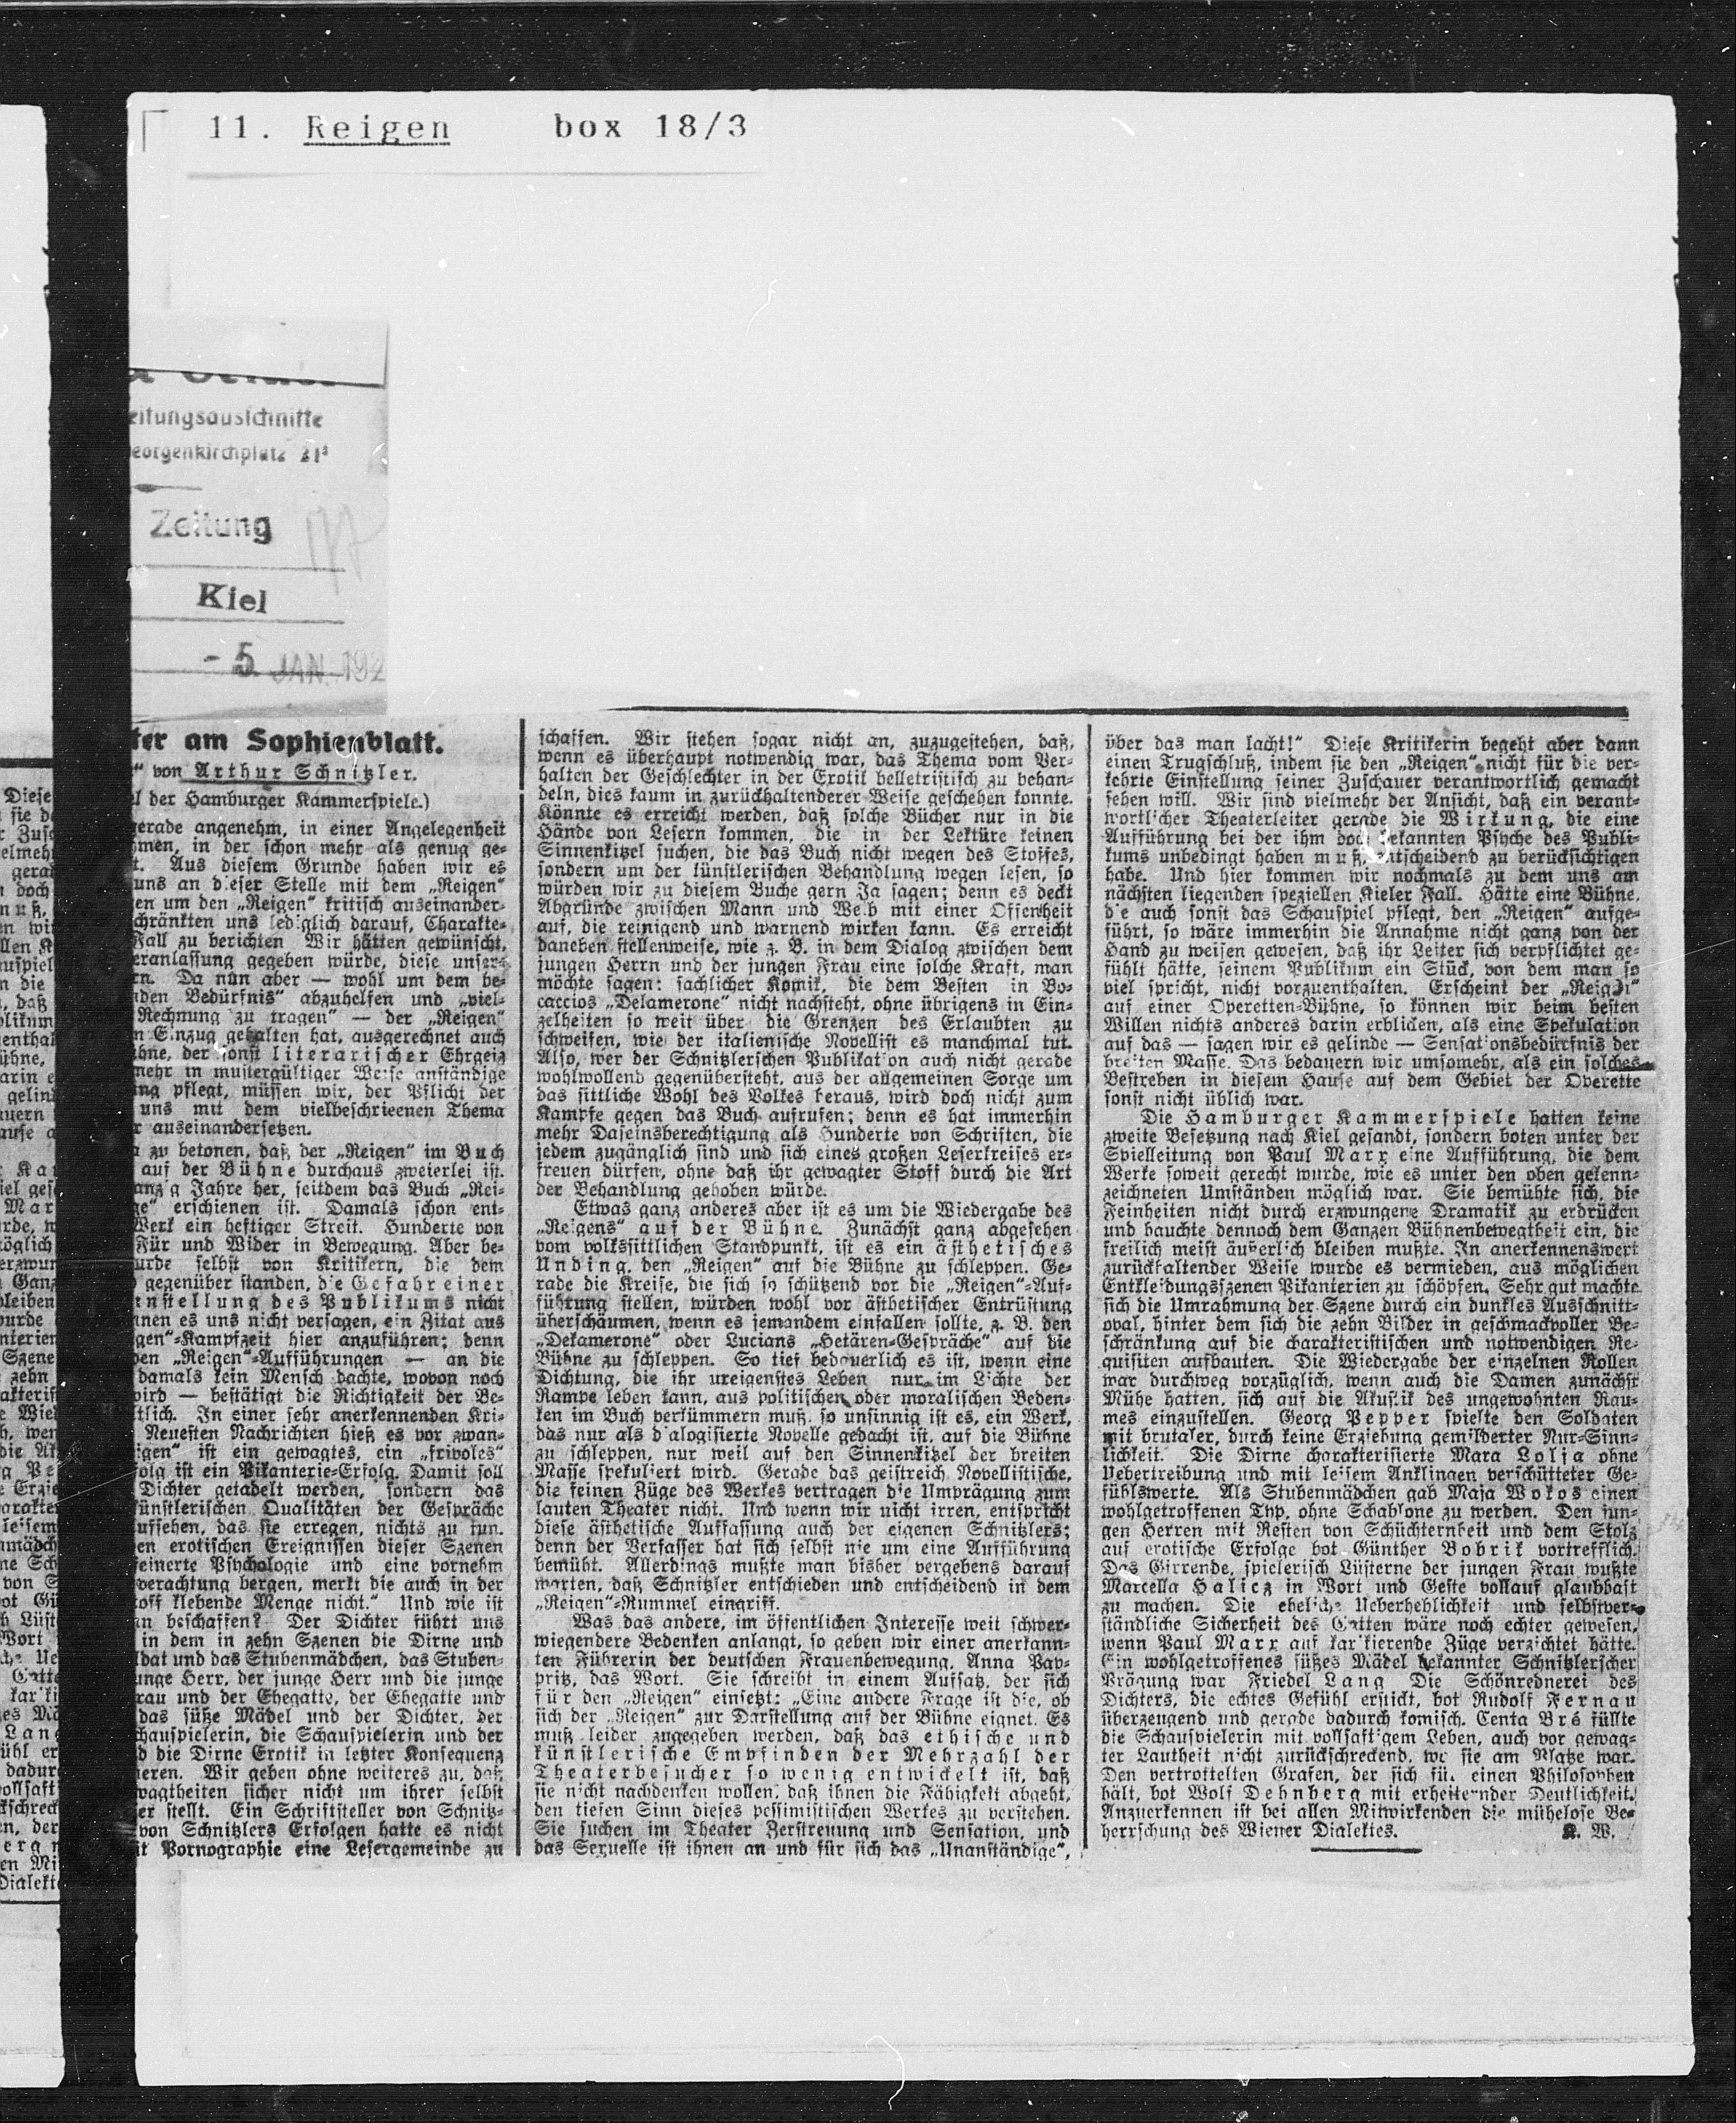 11. Reigen box 18/3
eitungsausschnitte
eorgenkirchplatz 21
Zeitung
Kiel
- 5. JAN. 192
ter am Sophienblatt.
“ von Arthur Schnitzler.
l der Hamburger Kammerspiele.)
gerade angenehm, in einer Angelegenheit
hmen, in der schon mehr als genug ge-
t. Aus diesem Grunde haben wir es
uns an dieser Stelle mit dem „Reigen“
en um den „Reigen“ kritisch auseinander-
chränkten uns lediglich darauf, Charakte-
Fall zu berichten Wir hätten gewünscht,
eranlassung gegeben würde, diese unsere
rn. Da nun aber — wohl um dem be-
nden Bedürfnis“ abzuhelfen und „viel-
Rechnung zu tragen“ — der „Reigen“
n Einzug gehalten hat, ausgerechnet auch
ühne, der sonst literarischer Ehrgeiz
mehr in mustergültiger Weise anständige
ng pflegt, müssen wir, der Pflicht der
uns mit dem vielbeschrieenen Thema
r auseinandersetzen.
zu betonen, daß der „Reigen“ im Buch
auf der Bühne durchaus zweierlei ist.
anzig Jahre her, seitdem das Buch „Rei-
ge“ erschienen ist. Damals schon ent-
Werk ein heftiger Streit. Hunderte von
Für und Wider in Bewegung. Aber be-
urde selbst von Kritikern, die dem
gegenüber standen, die Gefahr einer
nstellung des Publikums nicht
nnen es uns nicht versagen, ein Zitat aus
gen“-Kampfzeit hier anzuführen; denn
en „Reigen“-Aufführungen — an die
damals kein Mensch dachte, wovon noch
wird — bestätigt die Richtigkeit der Be-
tlich. In einer sehr anerkennenden Kri-
Neuesten Nachrichten hieß es vor zwan-
igen“ ist ein gewagtes, ein „frivoles“
folg ist ein Pikanterie-Erfolg. Damit soll
Dichter getadelt werden, sondern das
künstlerischen Qualitäten der Gespräche
ufsehen, das sie erregen, nichts zu tun.
en erotischen Ereignissen dieser Szenen
feinerte Psychologie und eine vornehm
verachtung bergen, merkt die auch in der
toff klebende Menge nicht.“ Und wie ist
n beschaffen? Der Dichter führt uns
in dem in zehn Szenen die Dirne und
ldat und das Stubenmädchen, das Stuben-
unge Herr, der junge Herr und die junge
rau und der Ehegatte, der Ehegatte und
das süße Mädel und der Dichter, der
chauspielerin, die Schauspielerin und der
d die Dirne Erotik in letzter Konsequenz
ieren. Wir geben ohne weiteres zu, daß
wagtheiten sicher nicht um ihrer selbst
er stellt. Ein Schriftsteller von Schnitz-
von Schnitzlers Erfolgen hatte es nicht
it Pornographie eine Lesergemeinde zu
schaffen. Wir stehen sogar nicht an, zuzugestehen, daß,
wenn es überhaupt notwendig war, das Thema vom Ver-
halten der Geschlechter in der Erotik belletristisch zu behan-
deln, dies kaum in zurückhaltenderer Weise geschehen konnte.
Könnte es erreicht werden, daß solche Bücher nur in die
Hände von Lesern kommen, die in der Lektüre keinen
Sinnenkitzel suchen, die das Buch nicht wegen des Stoffes,
sondern um der künstlerischen Behandlung wegen lesen, so
würden wir zu diesem Buche gern Ja sagen; denn es deckt
Abgründe zwischen Mann und Weib mit einer Offenheit
auf, die reinigend und warnend wirken kann. Es erreicht
daneben stellenweise, wie z. B. in dem Dialog zwischen dem
jungen Herrn und der jungen Frau eine solche Kraft, man
möchte sagen: sachlicher Komik, die dem Besten in Bo-
caccios „Delamerone“ nicht nachsteht, ohne übrigens in Ein-
zelheiten so weit über die Grenzen des Erlaubten zu
schweifen, wie der italienische Novellist es manchmal tut.
Also, wer der Schnitzlerschen Publikation auch nicht gerade
wohlwollend gegenübersteht, aus der allgemeinen Sorge um
das sittliche Wohl des Volkes heraus, wird doch nicht zum
Kampfe gegen das Buch aufrufen; denn es hat immerhin
mehr Daseinsberechtigung als Hunderte von Schriften, die
jedem zugänglich sind und sich eines großen Leserkreises er-
freuen dürfen, ohne daß ihr gewagter Stoff durch die Art
der Behandlung gehoben würde.
Etwas ganz anderes aber ist es um die Wiedergabe des
„Reigens“ auf der Bühne. Zunächst ganz abgesehen
vom volkssittlichen Standpunkt, ist es ein ästhetisches
Unding, den „Reigen“ auf die Bühne zu schleppen. Ge-
rade die Kreise, die sich so schützend vor die „Reigen“-Auf-
führung stellen, würden wohl vor ästhetischer Entrüstung
überschäumen, wenn es jemandem einfallen sollte, z. B. den
„Dekamerone“ oder Lucians „Hetären-Gespräche“ auf die
Bühne zu schleppen. So tief bedauerlich es ist, wenn eine
Dichtung, die ihr ureigenstes Leben nur im Lichte der
Rampe leben kann, aus politischen oder moralischen Beden-
ken im Buch verkümmern muß, so unsinnig ist es, ein Werk,
das nur als dialogisierte Novelle gedacht ist, auf die Bühne
zu schleppen, nur weil auf den Sinnenkitzel der breiten
Masse spekuliert wird. Gerade das geistreich Novellistische,
die feinen Züge des Werkes vertragen die Umprägung zum
lauten Theater nicht. Und wenn wir nicht irren, entspricht
diese ästhetische Auffassung auch der eigenen Schnitzlers;
denn der Verfasser hat sich selbst nie um eine Aufführung
bemüht. Allerdings mußte man bisher vergebens darauf
warten, daß Schnitzler entschieden und entscheidend in dem
„Reigen“-Rummel eingriff.
Was das andere, im öffentlichen Interesse weit schwer-
wiegendere Bedenken anlangt, so geben wir einer anerkann-
ten Führerin der deutschen Frauenbewegung, Anna Pap-
pritz, das Wort. Sie schreibt in einem Aufsatz, der sich
für den „Reigen“ einsetzt: „Eine andere Frage ist die, ob
sich der „Reigen“ zur Darstellung auf der Bühne eignet. Es
muß leider zugegeben werden, daß das ethische und
künstlerische Empfinden der Mehrzahl der
Theaterbesucher so wenig entwickelt ist, daß
sie nicht nachdenken wollen, daß ihnen die Fähigkeit abgeht,
den tiefen Sinn dieses pessimistischen Werkes zu verstehen.
Sie suchen im Theater Zerstreuung und Sensation, und
das Sexuelle ist ihnen an und für sich das „Unanständige“,
über das man lacht!“ Diese Kritikerin begeht aber dann
einen Trugschluß, indem sie den „Reigen“ nicht für die ver-
kehrte Einstellung seiner Zuschauer verantwortlich gemacht
sehen will. Wir sind vielmehr der Ansicht, daß ein verant-
wortlicher Theaterleiter gerade die Wirkung, die eine
Aufführung bei der ihm doch bekannten Psyche des Publi-
kums unbedingt haben muß, entscheidend zu berücksichtigen
habe. Und hier kommen wir nochmals zu dem uns am
nächsten liegenden speziellen Kieler Fall. Hätte eine Bühne,
die auch sonst das Schauspiel pflegt, den „Reigen“ aufge-
führt, so wäre immerhin die Annahme nicht ganz von der
Hand zu weisen gewesen, daß ihr Leiter sich verpflichtet ge-
fühlt hätte, seinem Publikum ein Stück, von dem man so
viel spricht, nicht vorzuenthalten. Erscheint der „Reigen“
auf einer Operetten-Bühne, so können wir beim besten
Willen nichts anderes darin erblicken, als eine Spekulation
auf das — sagen wir es gelinde — Sensationsbedürfnis der
breiten Masse. Das bedauern wir umsomehr, als ein solches
Bestreben in diesem Hause auf dem Gebiet der Operette
sonst nicht üblich war.
Die Hamburger Kammerspiele hatten keine
zweite Besetzung nach Kiel gesandt, sondern boten unter der
Spielleitung von Paul Marx eine Aufführung, die dem
Werke soweit gerecht wurde, wie es unter den oben gekenn-
zeichneten Umständen möglich war. Sie bemühte sich, die
Feinheiten nicht durch erzwungene Dramatik zu erdrücken
und hauchte dennoch dem Ganzen Bühnenbewegtheit ein, die
freilich meist äußerlich bleiben mußte. In anerkennenswert
zurückhaltender Weise wurde es vermieden, aus möglichen
Entkleidungsszenen Pikanterien zu schöpfen. Sehr gut machte
sich die Umrahmung der Szene durch ein dunkles Ausschnitt-
oval, hinter dem sich die zehn Bilder in geschmackvoller Be-
schränkung auf die charakteristischen und notwendigen Re-
quisiten aufbauten. Die Wiedergabe der einzelnen Rollen
war durchweg vorzüglich, wenn auch die Damen zunächst
Mühe hatten, sich auf die Akustik des ungewohnten Rau-
mes einzustellen. Georg Pepper spielte den Soldaten
mit brutaler, durch keine Erziehung gemilderter Nur-Sinn-
lichkeit. Die Dirne charakterisierte Mara Lolja ohne
Uebertreibung und mit leisem Anklingen verschütteter Ge-
fühlswerte. Als Stubenmädchen gab Maja Wokos einen
wohlgetroffenen Typ, ohne Schablone zu werden. Den jun-
gen Herren mit Resten von Schüchternheit und dem Stolz
auf erotische Erfolge bot Günther Bobrik vortrefflich.
Das Girrende, spielerisch Lüsterne der jungen Frau wußte
Marcella Halicz in Wort und Geste vollauf glaubhaft
zu machen. Die eheliche Ueberheblichkeit und selbstver-
ständliche Sicherheit des Gatten wäre noch echter gewesen,
wenn Paul Marx auf karikierende Züge verzichtet hätte.
Ein wohlgetroffenes süßes Mädel bekannter Schnitzlerscher
Prägung war Friedel Lang Die Schönrednerei des
Dichters, die echtes Gefühl erstickt, bot Rudolf Fernau
überzeugend und gerade dadurch komisch. Centa Bré füllte
die Schauspielerin mit vollsaftigem Leben, auch vor gewag-
ter Lautheit nicht zurückschreckend, wo sie am Platze war.
Den vertrottelten Grafen, der sich für einen Philosophen
hält, bot Wolf Dehnberg mit erheiternder Deutlichkeit.
Anzuerkennen ist bei allen Mitwirkenden die mühelose Be-
herrschung des Wiener Dialektes. W.